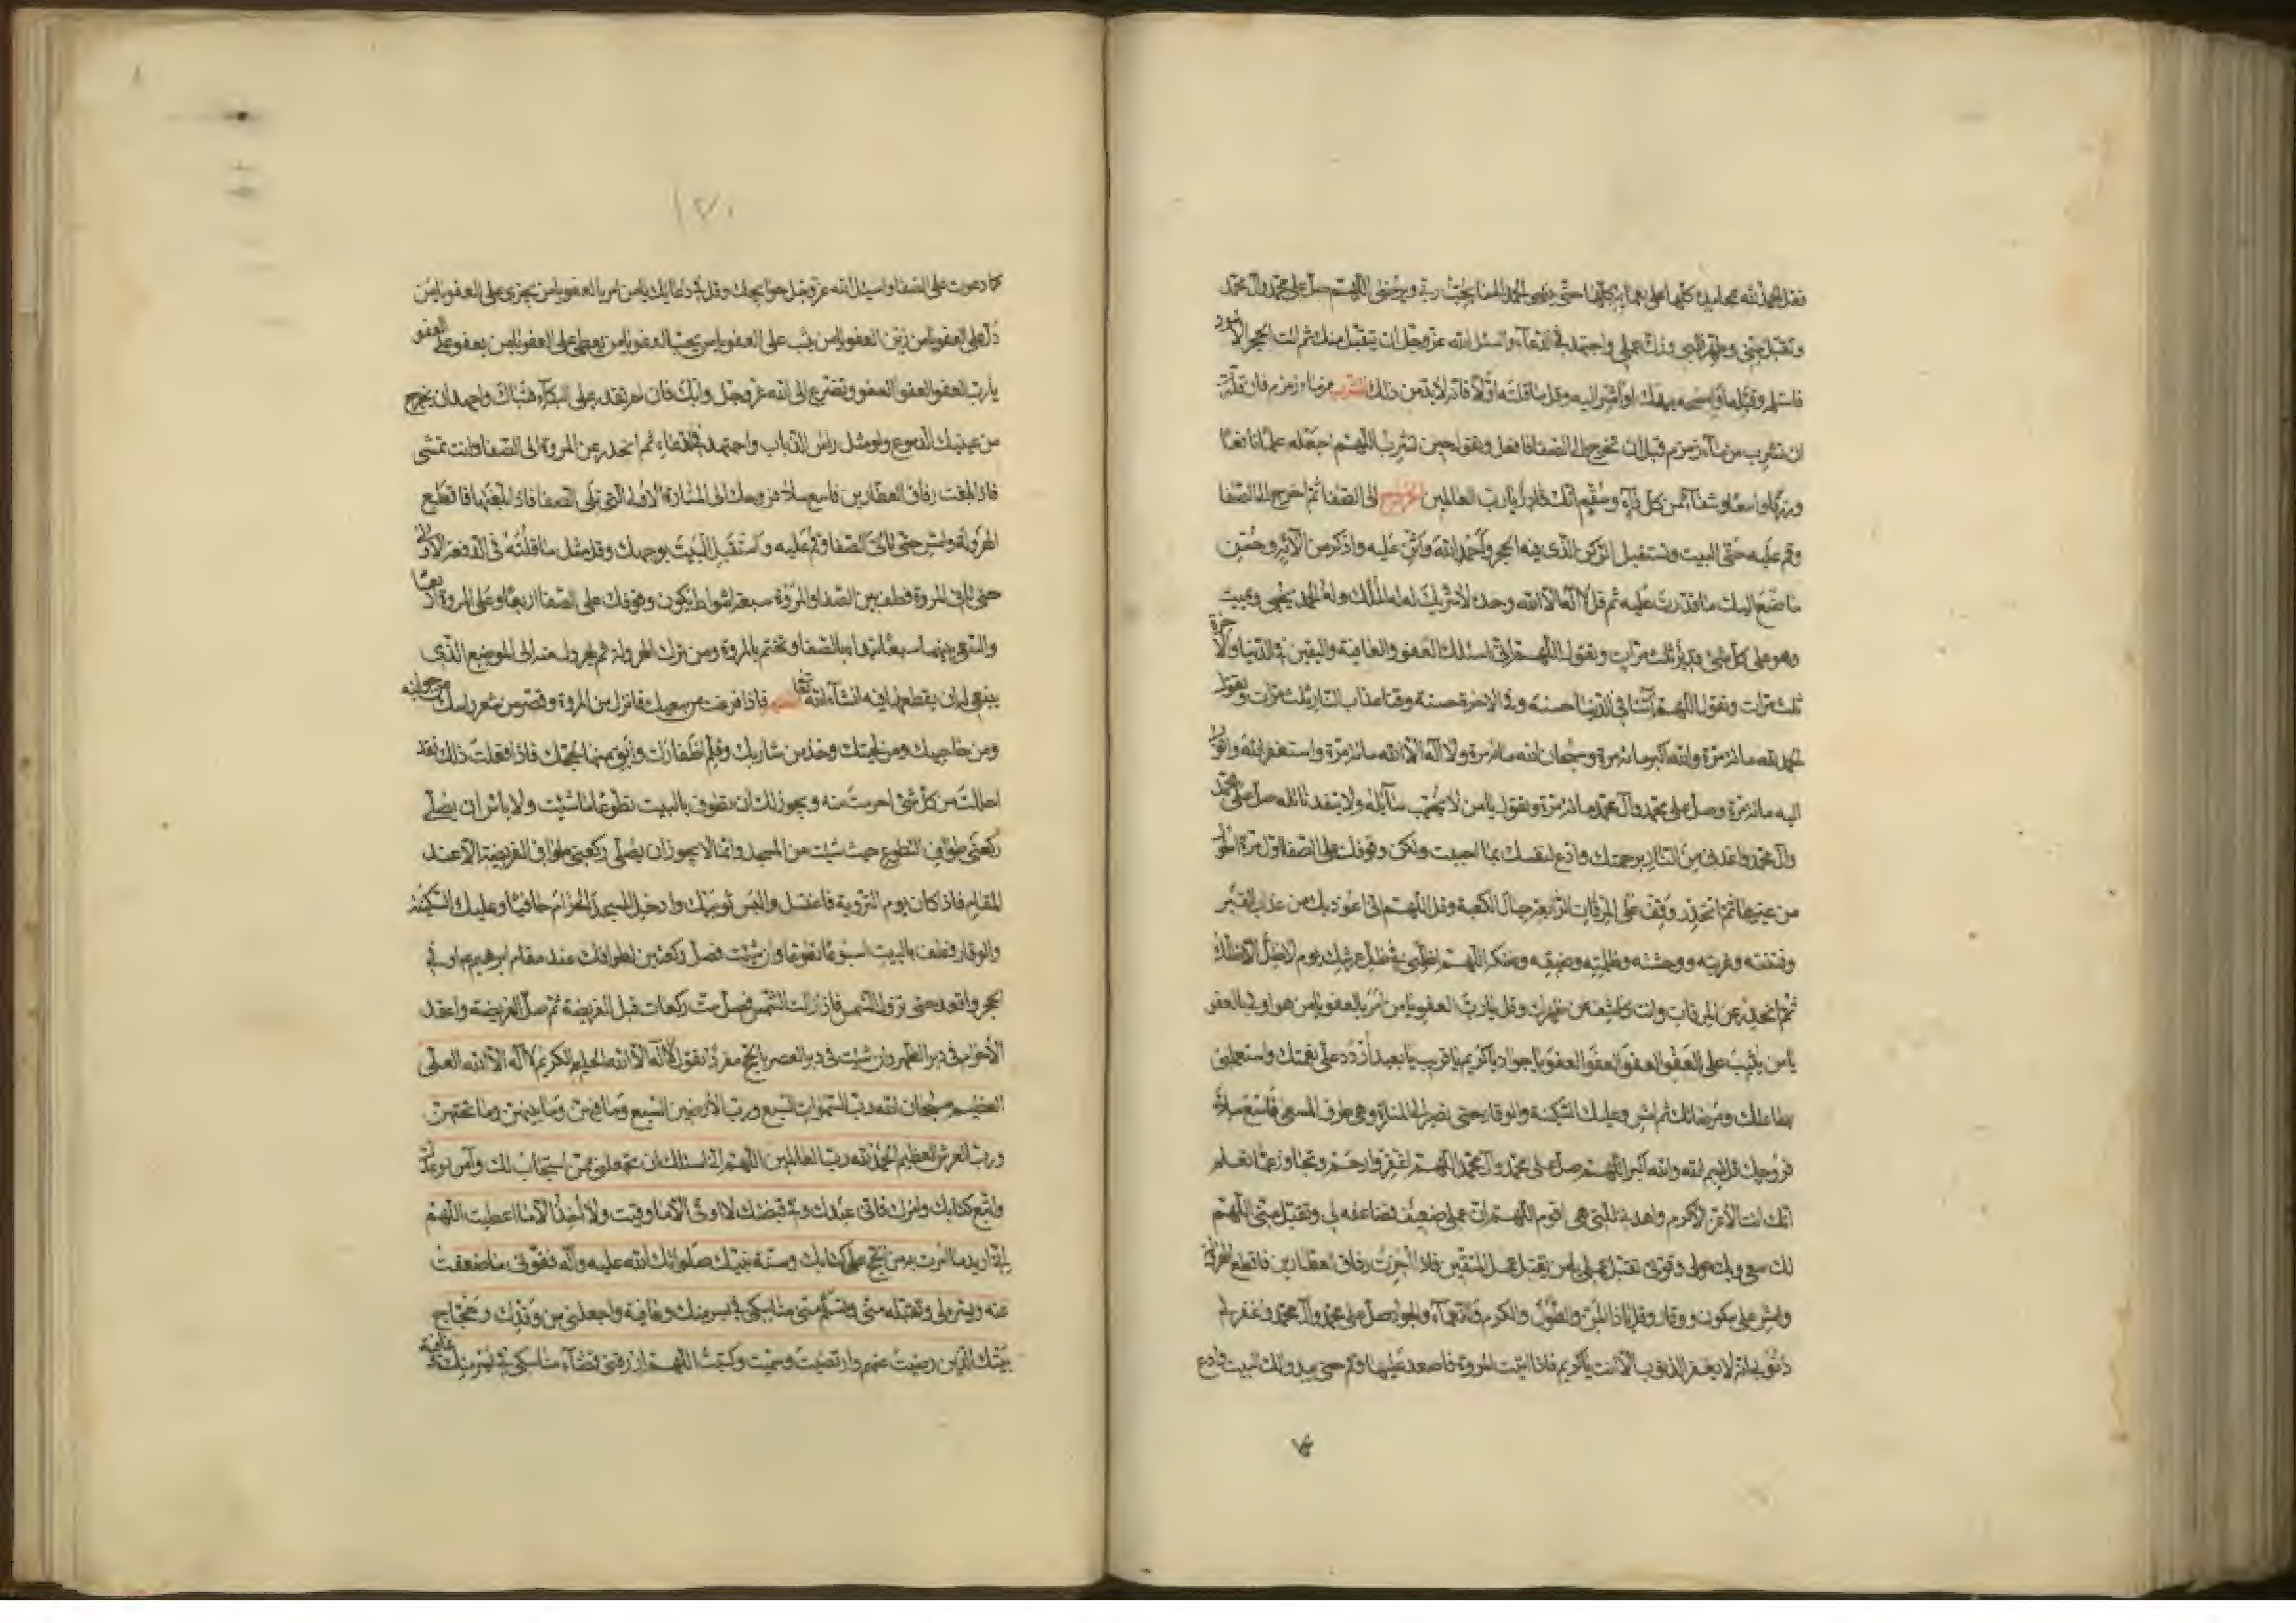 فقل الحمد لله بمحامده كلها على نعمائه كلها حتى ينتهى الحمد الى ما يحب ربى ويرضى اللهم صل على محمد وآل محمد
وتقبل منى وطهر قلبى وزك عملى واجتهد فى الدعاء واسئل الله عز وجل ان يتقبل منك ثم ائت الحجر الاسود
فاستلمه وقبله او امسحه بيدك او اشر اليه وقل ما قلته اولا فانه لابد من ذلك الشرب من ماء زمزم فان قدرت
ان تشرب من ماء زمزم قبل ان تخرج الى الصفا فافعل وتقول حين تشرب اللهم اجعله علما نافعا
ورزقا واسعا وشفاء من كل داء وسقم انك قادر يا رب العالمين الخروج الى الصفا ثم اخرج الى الصفا
وقم عليه حتى البيت وتستقبل الركن الذى فيه الحجر واحمد الله واثن عليه واذكر من آلائه وحسن
ما صنع اليك ما قدرت عليه ثم قل لا اله الا الله وحده لا شريك له له الملك وله الحمد يحيى ويميت
وهو على كل شئ قدير ثلث مرات وتقول اللهم انى اسئلك العفو والعافية واليقين فى الدنيا والاخرة
ثلث مرات وتقول اللهم آتنا فى الدنيا حسنة وفى الاخرة حسنة وقنا عذاب النار ثلث مرات وتقول
الحمد لله مائة مرة والله اكبر مائة مرة وسبحان الله مائة مرة ولا اله الا الله مائة مرة واستغفر الله واتوب
اليه مائة مرة وصل على محمد وآل محمد مائة مرة وتقول يا من لا يخيب سائله ولا ينفد نائله صل على محمد
وآل محمد واعذنى من النار برحمتك وادع لنفسك بما احببت وليكن وقوفك على الصفا اول مرة اطول
من غيرها ثم انحدر وقف على المرقاة الرابعة حيال الكعبة وقل اللهم انى اعوذ بك من عذاب القبر
وفتنته وغربته ووحشته وظلمته وضيقه وضنكه اللهم اظلنى فى ظل عرشك يوم لا ظل الا ظلك
ثم انحدر عن المرقاة وانت كاشف عن ظهرك وقل يا رب العفو يا من امر بالعفو يا من هو اولى بالعفو
يا من يثيب على العفو العفو العفو العفو يا جواد يا كريم يا قريب يا بعيد اردد على نعمتك واستعملنى
بطاعتك ومرضاتك ثم امش وعليك السكينة والوقار حتى تصير الى المنارة وهى طرف المسعى فاسع ملأ
فروجك وقل بسم الله والله اكبر اللهم صل على محمد وآل محمد اللهم اغفر وارحم وتجاوز عما تعلم
انك انت الاعز الاكرم واهدنى للتى هى اقوم اللهم ان عملى ضعيف فضاعفه لى وتقبل منى اللهم
لك سعيى وبك حولى وقوتى تقبل عملى يا من يقبل عمل المتقين فاذا جزت زقاق العطارين فاقطع الهرولة
وامش على سكون ووقار وقل يا ذا المن والطول والكرم والنعماء والجود صل على محمد وآل محمد واغفر لى
ذنوبى انه لا يغفر الذنوب الا انت يا كريم فاذا اتيت المروة فاصعد عليها وقم حتى يبدو لك البيت وادع
١٢٠
كما دعوت على الصفا واسئل الله عز وجل حوائجك وقل فى دعائك يا من امر بالعفو يا من يجزى على العفو يا من
دل على العفو يا من زين العفو يا من يثيب على العفو يا من يحب العفو يا من يعطى على العفو يا من يعفو على العفو
يا رب العفو العفو العفو وتضرع الى الله عز وجل وابك فان لم تقدر على البكاء فتباك واجهد ان يخرج
من عينيك الدموع ولو مثل راس الذباب واجتهد فى الدعاء ثم انحدر عن المروة الى الصفا وانت تمشى
فاذا بلغت زقاق العطارين فاسع ملأ فروجك الى المنارة الاولى التى تلى الصفا فاذا بلغتها فاقطع
الهرولة وامش حتى تاتى الصفا وقم عليه واستقبل البيت بوجهك وقل مثل ما قلته فى الدفعة الاولى
حتى تاتى المروة فطف بين الصفا والمروة سبعة اشواط يكون وقوفك على الصفا اربعا وعلى المروة اربعا
والسعى بينهما سبعا تبدا بالصفا وتختم بالمروة ومن ترك الهرولة
ينبغى له ان يقطعها فيه انشاء الله تعالى التقصير فاذا فرغت من سعيك فانزل من المروة وقصر من شعر راسك من جوانبه
ومن حاجبيك ومن لحيتك وخذ من شاربك وقلم اظفارك وابق منها لحجك فاذا فعلت ذلك فقد
احللت من كل شئ احرمت منه ويجوز لك ان تطوف بالبيت تطوعا ما شئت ولا باس ان يصلى
ركعتى طواف التطوع حيث شئت من المسجد وانما لا يجوز ان يصلى ركعتى طواف الفريضة الا عند
المقام فاذا كان يوم التروية فاغتسل والبس ثوبيك وادخل المسجد الحرام حافيا وعليك السكينة
والوقار فطف بالبيت اسبوعا تطوعا وان شئت فصل ركعتين لطوافك عند مقام ابرهيم او فى
الحجر واقعد حتى تزول الشمس فاذا زالت الشمس فصل ست ركعات قبل الفريضة ثم صل الفريضة واعقد
الاحرام فى دبر الظهر وان شئت فى دبر العصر بالحج مفردا تقول لا اله الا الله الحليم الكريم لا اله الا الله العلى
العظيم سبحان الله رب السموات السبع ورب الارضين السبع وما فيهن وما بينهن وما تحتهن
ورب العرش العظيم الحمد لله رب العالمين اللهم انى اسئلك ان تجعلنى ممن استجاب لك وآمن بوعدك
واتبع كتابك وامرك فانى عبدك وفى قبضتك لا اوقى الا ما وقيت ولا آخذ الا ما اعطيت اللهم
انى اريد ما امرت به من الحج على كتابك وسنة نبيك صلواتك الله عليه وآله فقونى ما ضعفت
عنه ويسره لى وتقبله منى وتسلم منى مناسكى فى يسر منك وعافية واجعلنى من وفدك وحجاج
بيتك الذين رضيت عنهم وارتضيت وسميت وكتبت اللهم ارزقنى قضاء مناسكى فى يسر منك وعافية